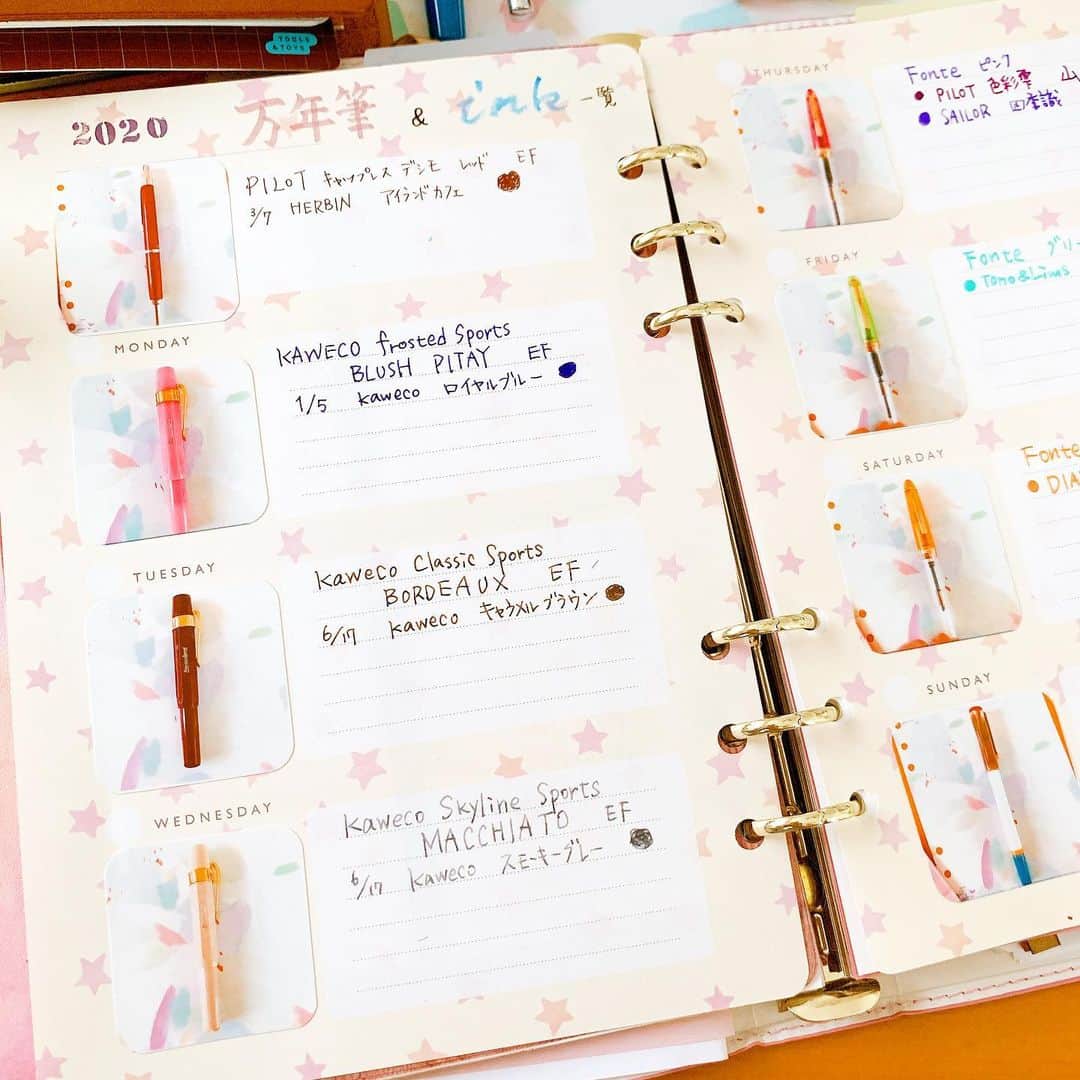 TOOLS
& TOYS
2020 万年筆 & ink 一覧
PILOT キャップレス デシモ レッド EF
3/7 HERBIN アイランドカフェ
MONDAY
KAWECO frosted Sports
BLUSH PITAY EF
1/5 kaweco ロイヤルブルー
TUESDAY
Kaweco Classic Sports
BORDEAUX EF
6/17 kaweco キャラメルブラウン
WEDNESDAY
Kaweco Skyline Sports
MACCHIATO EF
6/17 kaweco スモーキーグレー
THURSDAY
Fonte ピンク
PILOT 色彩雫 山
SAILOR 四季織
FRIDAY
Fonte グリー
Tono&Lims
SATURDAY
Fonte
DIA
SUNDAY